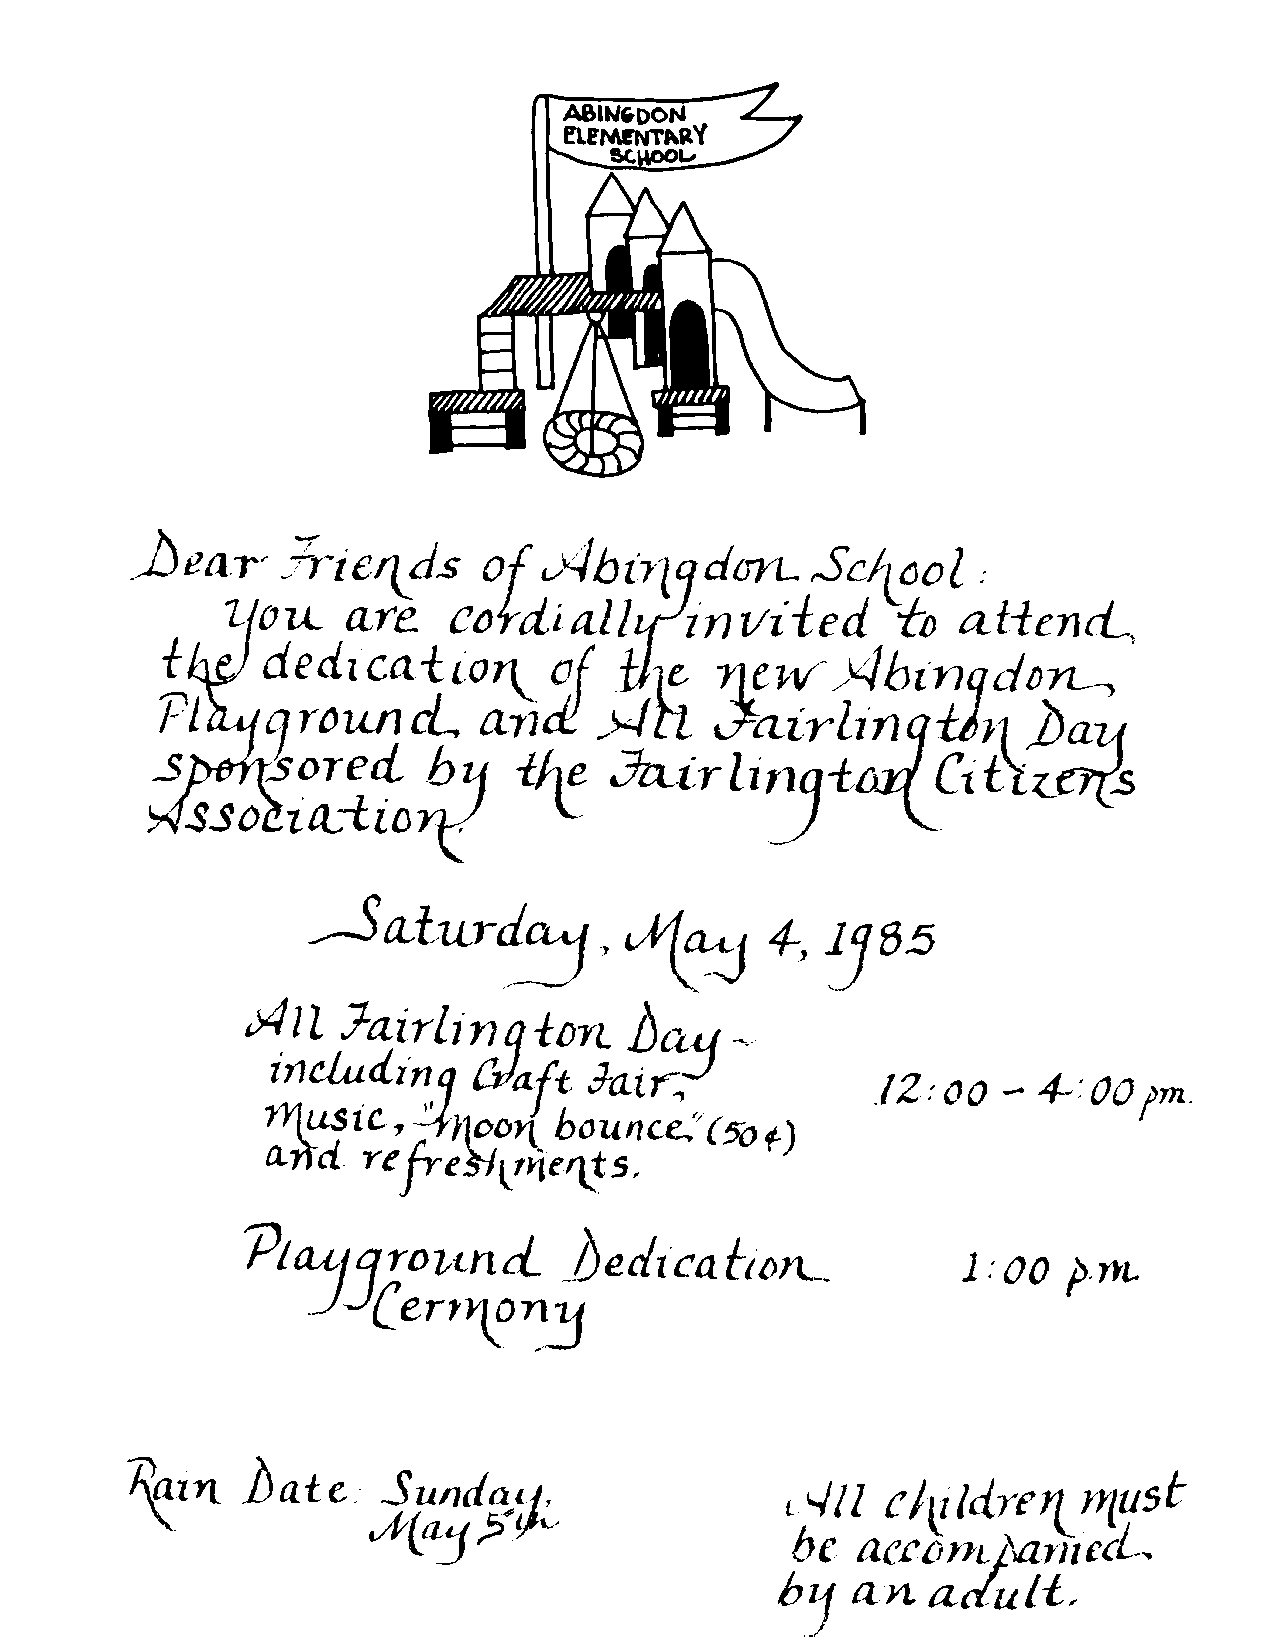 ABINGDON
ELEMENTARY
SCHOOL
Dear Friends of Abingdon School:
You are cordially invited to attend
the dedication of the new Abingdon
Playground and All Fairlington Day
sponsored by the Fairlington Citizens
Association.
Saturday, May 4, 1985
All Fairlington Day -
including Craft Fair,
music, "moon bounce" (50¢)
and refreshments.
12:00 - 4:00 pm.
Playground Dedication
Cermony
1:00 p.m.
Rain Date: Sunday,
May 5th
All children must
be accompanied
by an adult.